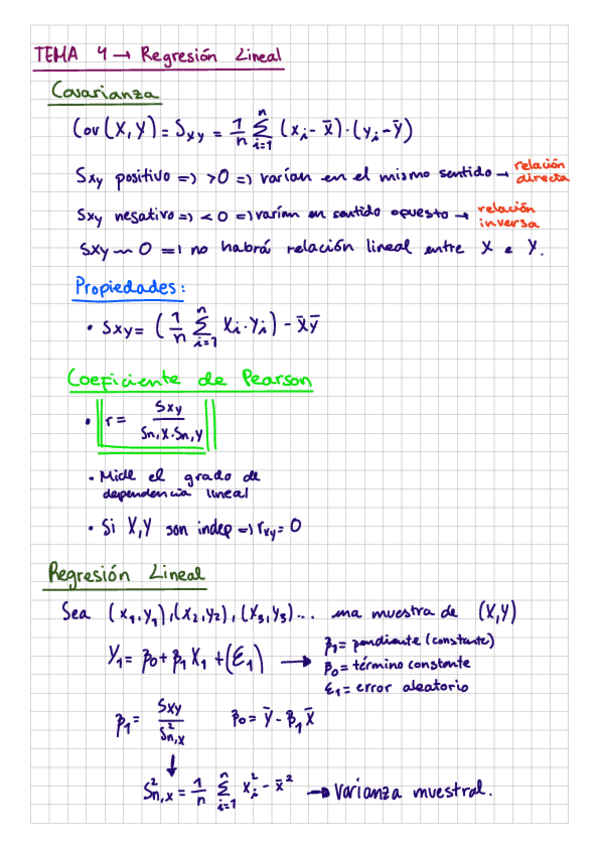 TEMA 4 → Regresión Lineal
Covarianza
Cov(X,Y) = Sxy = 1/n Σ_{i=1}^{n} (xi - x̄)·(yi - ȳ)
Sxy positivo => >0 => varían en el mismo sentido → relación directa
Sxy negativo => <0 => varían en sentido opuesto → relación inversa
Sxy ~ 0 => no habrá relación lineal entre X e Y.
Propiedades:
• Sxy = (1/n Σ_{i=1}^{n} Xi·Yi) - x̄ȳ
Coeficiente de Pearson
• r = Sxy / Sn,X·Sn,Y
• Mide el grado de
dependencia lineal
• Si X,Y son indep => rxy = 0
Regresión Lineal
Sea (x1,y1),(x2,y2),(x3,y3)... una muestra de (X,Y)
Y1 = β0 + β1 X1 + (ε1) → β1 = pendiente (constante)
β0 = término constante
ε1 = error aleatorio
β1 = Sxy / S²n,x β0 = ȳ - β1 x̄
↓
S²n,x = 1/n Σ_{i=1}^{n} xi² - x̄² → Varianza muestral.